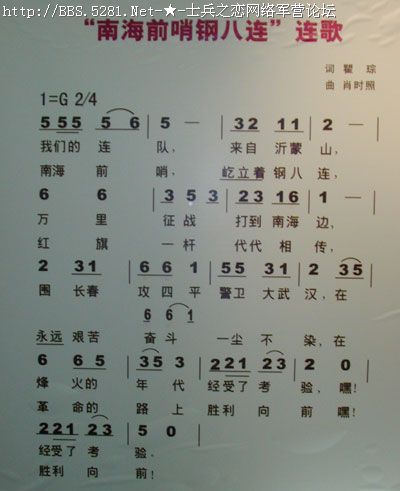 http://BBS.5281.Net-★-士兵之恋网络军营论坛
“南海前哨钢八连”连歌
词 瞿琮
曲 肖时照
1=G 2/4
5 55 5 6 | 5 — | 32 11 | 2 — |
我们的 连 队, 来自 沂蒙 山,
南海 前 哨, 屹立着 钢八 连,
6 6 | 3 5 3 | 23 16 | 1 — |
万 里 征 战 打到 南海 边,
红 旗 一 杆 代代 相 传,
2 31 | 6 6 1 | 55 31 | 2 35 |
围 长春 攻 四 平 警卫 大武 汉, 在
6 6 1
永远 艰苦 奋 斗 一尘 不 染, 在
6 65 | 35 3 | 221 23 | 2 0 |
烽 火的 年 代 经受了 考 验, 嘿!
革 命的 路 上 胜利 向 前 嘿!
221 23 | 5 0 |
经受了 考 验.
胜利 向 前!